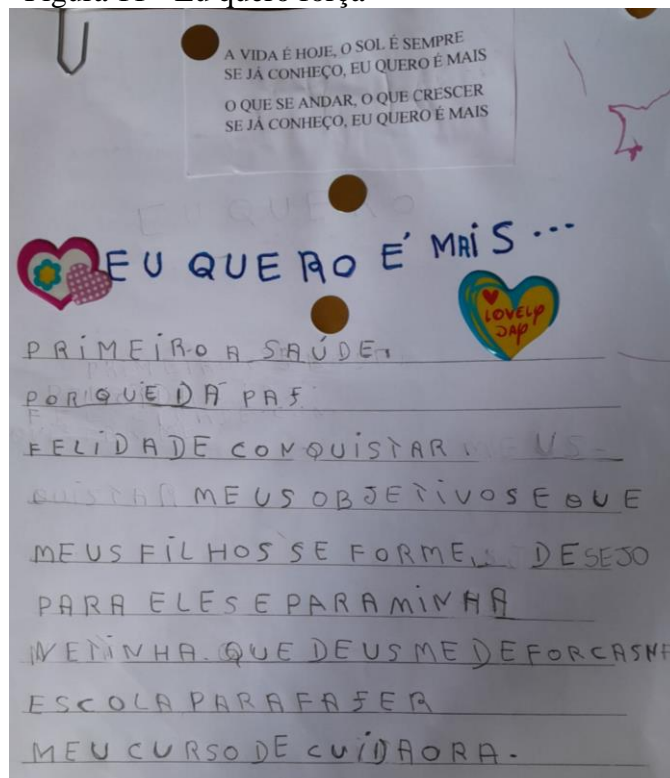 Figura 11 - Eu quero força
A VIDA É HOJE, O SOL É SEMPRE
SE JÁ CONHEÇO, EU QUERO É MAIS
O QUE SE ANDAR, O QUE CRESCER
SE JÁ CONHEÇO, EU QUERO É MAIS
EU QUERO
EU QUERO É MAIS...
LOVELY
DAY
PRIMEIRO A SAÚDE.
PORQUE DÁ PAS
FELIDADE CONQUISTAR.
MEUS OBJETIVOS E QUE
MEUS FILHOS SE FORME. DESEJO
PARA ELES E PARA MINHA
NETINHA. QUE DEUS ME DE FORCAS NA
ESCOLA PARA FASER
MEU CURSO DE CUIDAORA.